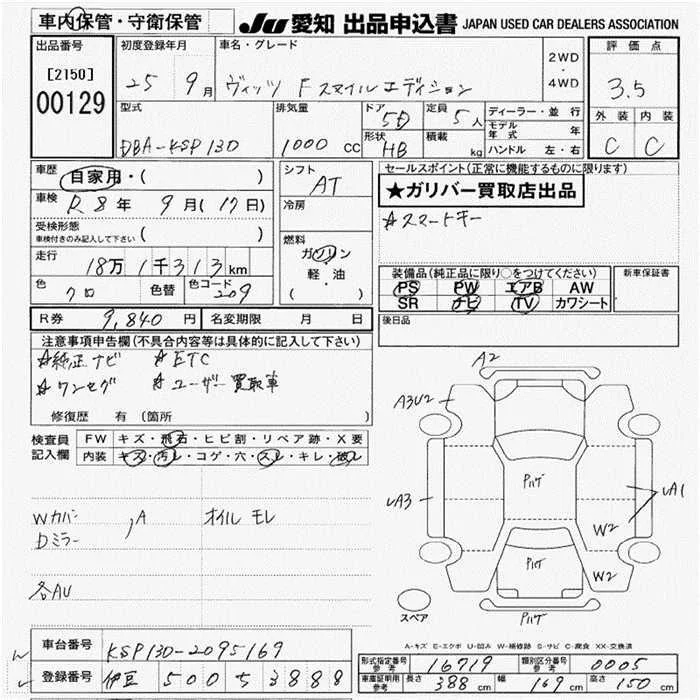 車内保管・守衛保管
JU 愛知 出品申込書 JAPAN USED CAR DEALERS ASSOCIATION
出品番号
[2150]
00129
初度登録年月
25 9月
車名・グレード
ヴィッツ Fスマイルエディション
2WD
・
4WD
評価点
3.5
外装 内装
C C
型式
DBA-KSP130
排気量
1000 CC
ドア 5D
形状 HB
定員 5人
積載 kg
ディーラー・並行
モデル年式 年
ハンドル 左・右
車歴
自家用・( )
車検 R8年 9月(17日)
受検形態
車検付きのみ記入して下さい ( )
走行
18万1千313km
色 クロ 色替 色コード 209
シフト
AT
冷房
燃料
ガソリン
軽・油
( )
セールスポイント(正常に機能するものに限ります)
★ガリバー買取店出品
☆スマートキー
装備品(純正品に限り○をつけてください)
PS PW エアB AW
SR ナビ TV カワシート
新車保証書
後日品
R券 9,840円 名変期限 月 日
注意事項申告欄(不具合内容等は具体的に記入して下さい)
☆純正ナビ ☆ETC
☆ワンセグ ☆ユーザー買取車
修復歴 有 (箇所 )
検査員
記入欄
FW キズ・飛石・ヒビ割・リペア跡・X要
内装 キズ・汚レ・コゲ・穴・スレ・キレ・破レ
Wカバー
Dミラー , A
オイルモレ
各AU
A2
A3U2
UA3
UA1
W2
W2
パハゲ
パハゲ
パハゲ
スペア
A-キズ E-エクボ U-凹み W-補修跡 S-サビ C-腐食 XX-交換済
車台番号 KSP130-2095169
登録番号 伊豆 500 5 3888
型式指定番号 参考 16719 類別区分番号 参考 0005
車庫証明用 参考 長さ 388cm 幅 169cm 高さ 150cm